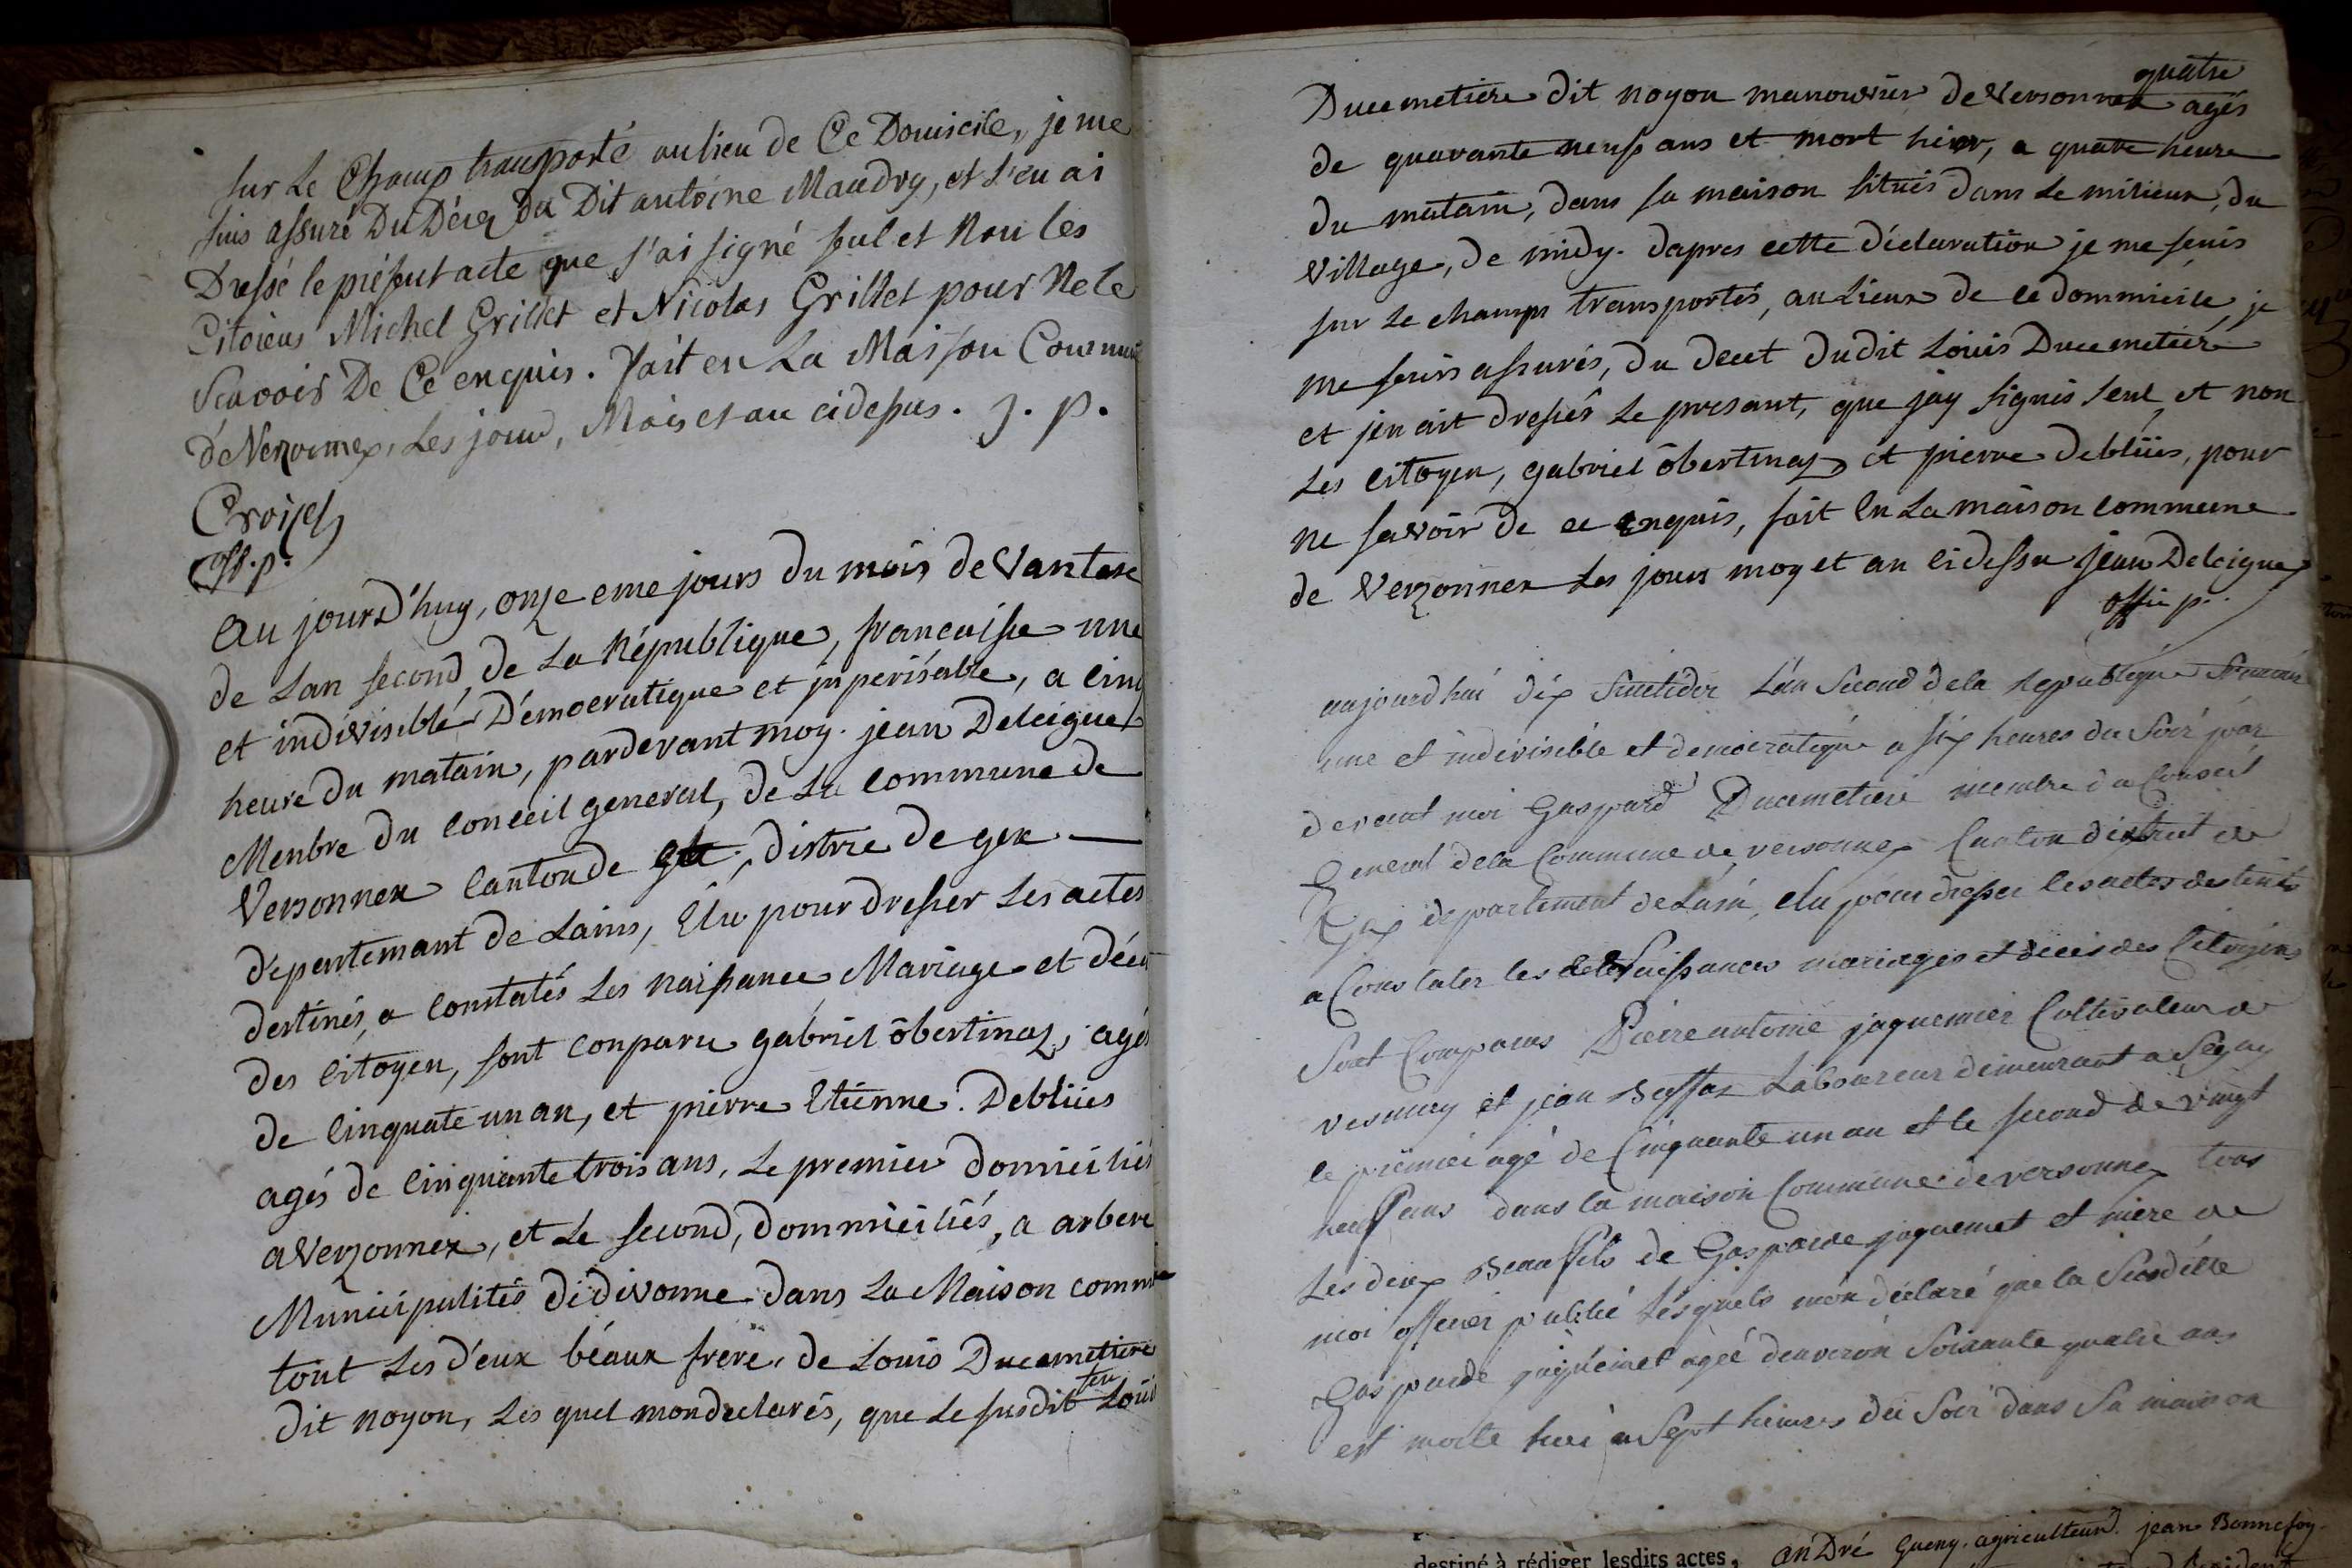 sur Le Champ transporté au lieu de Ce Domicile, je me
suis assuré Du Décez Du Dit antoine Maudry, et J'en ai
Dressé le présent acte que j'ai signé seul et Non les
Citoiens Michel Grillet et Nicolas Grillet pour Ne le
Scavoir De Ce enquis. fait en La Maison Commune
de Verzonnex, Les jour, Mois et an cidessus. J. p.
Croizet
off. p.
au jourd'huy, onze eme jours du mois de Vantose
de Lan second, de La République, francaisse une
et indivisible Démocratique et jnperisable, a cinq
heure du matain, pardevant moy. jean Deleigue
Menbre du conceil general, de La commune de
Versonnex canton de gex, distric de gex —
département de Lains, Elu pour dresser Les actes
destinés, a constatés Les naissance Mariage et décet
des citoyen, sont conparu gabriel ôbertinaz, agés
de cinquate un an, et pierre Etienne. Debliies
agés de cinquante trois ans, Le premier domicilies
a Verzonnex, et Le second, dommiciliés, a arbere
Municipalités didivonne dans La Maison comm
tout Les d'eux béaux frere, de Louis Ducemetiere
dit noyon, Les quel mon declarés, que Le susdit feu Louis
Ducemetiere dit noyon manouvrier de Versonnex agés quatre
de quarante neuf ans et mort hier, a quatre heure
du matain, dans sa maison situés dans Le milieux, du
village, de midy. dapres cette déclaration je me suis
sur Le champs transportés, au Lieux de ce dommicile, je
me suis assurés, du decet dudit Louis Ducemetiere
et jen ait dressés Le presant, que jay signés seul, et non
Les citoyen, gabriel ôbertinaz et pierre Debliies, pour
ne savoir de ce enquis, fait En La maison commune
de Verzonnex Les jours moy et an cidessu jean Deleigue
offi p.
aujourdhui dix Lan Second dela Republique
une et indivisible et democratique a six heures du Soir par
devant moi Gaspard Ducemetiere membre du Conseil
General dela Commune de versonnex Canton district de
Gex département de Lain, elu pour dresser les actes destinés
a Constater les Naissances mariages et décès des Citoyens
Sont Comparus Pierre antoine jaquemier Cultivateur de
vesancy et jean Laboureur demeurant a Segny
le premier agé de Cinquante un an et le second de vingt
neuf ans dans la maison Commune de versonnex tous
Les deux Beaufils de Gasparde jaquemet et mere de
moi officier public Lesquels mon déclaré que la Susditte
Gasparde jaquemet agée denviron Soixante quatre ans
est morte hier a Sept heures du Soir dans Sa maison
destiné à rédiger lesdits actes, anDré Gueny. agriculteur. jean Bonnefoy.